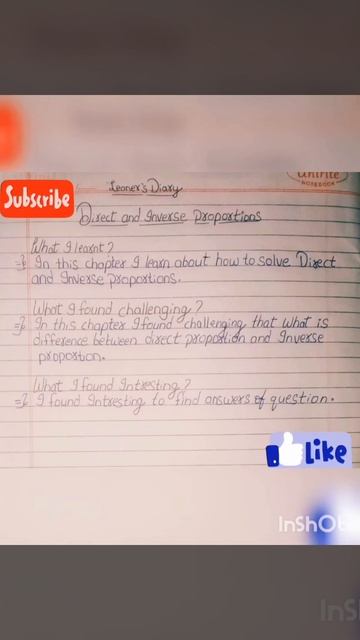 Unirite
NOTEBOOK
Subscribe
Leaner's Diary
Direct and Inverse Proportions
What I learnt?
⇒ In this chapter I learn about how to solve Direct
and Inverse proportions.
What I found challenging?
⇒ In this chapter I found challenging that what is
difference between direct proportion and Inverse
proportion.
What I found Intresting?
⇒ I found Intresting to find answers of question.
Like
InShOt
InS